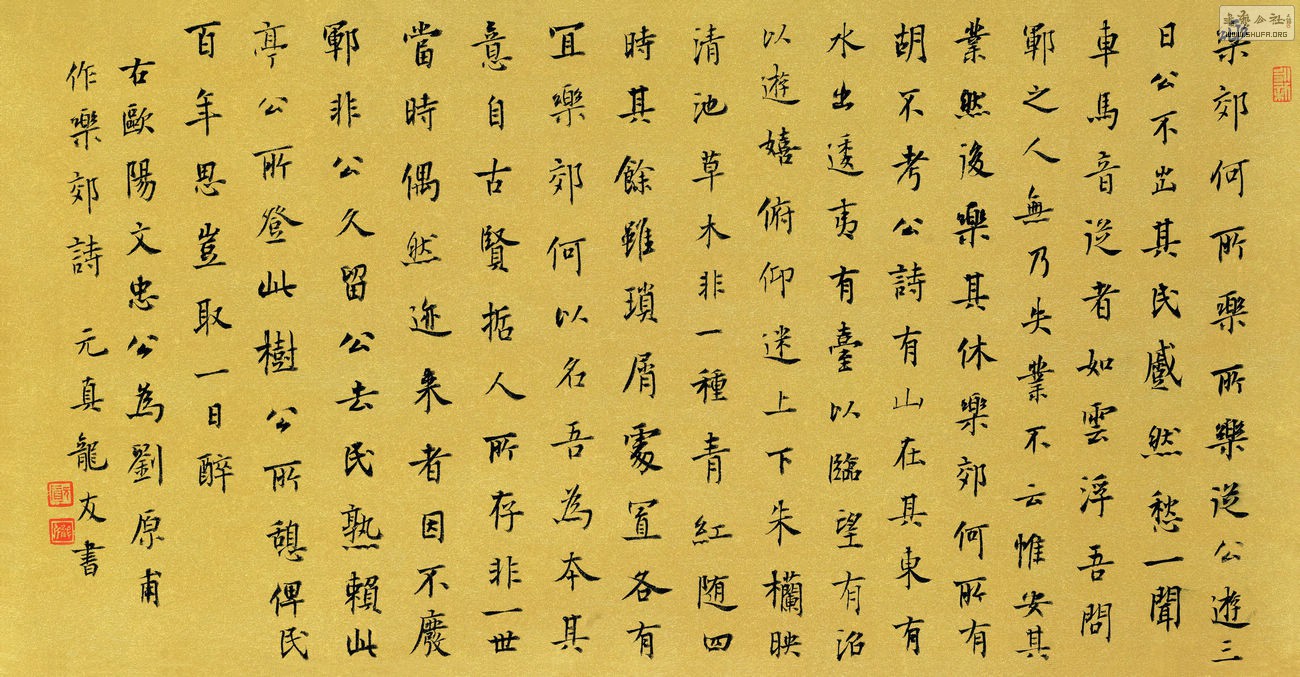 樂郊何所樂所樂從公遊三
日公不出其民慼然愁一聞
車馬音從者如雲浮吾問
鄆之人無乃失業不云惟安其
業然後樂其休樂郊何所有
胡不考公詩有山在其東有
水出逶夷有臺以臨望有沼
以遊嬉俯仰迷上下朱欄映
清池草木非一種青紅随四
時其餘雖瑣屑處置各有
宜樂郊何以名吾為本其
意自古賢哲人所存非一世
當時偶然迹来者因不廢
鄆非公久留公去民熟賴此
亭公所登此樹公所憩俾民
百年思豈取一日醉
右歐陽文忠公為劉原甫
作樂郊詩 元真龍友書
WWW.SHUFR.ORG